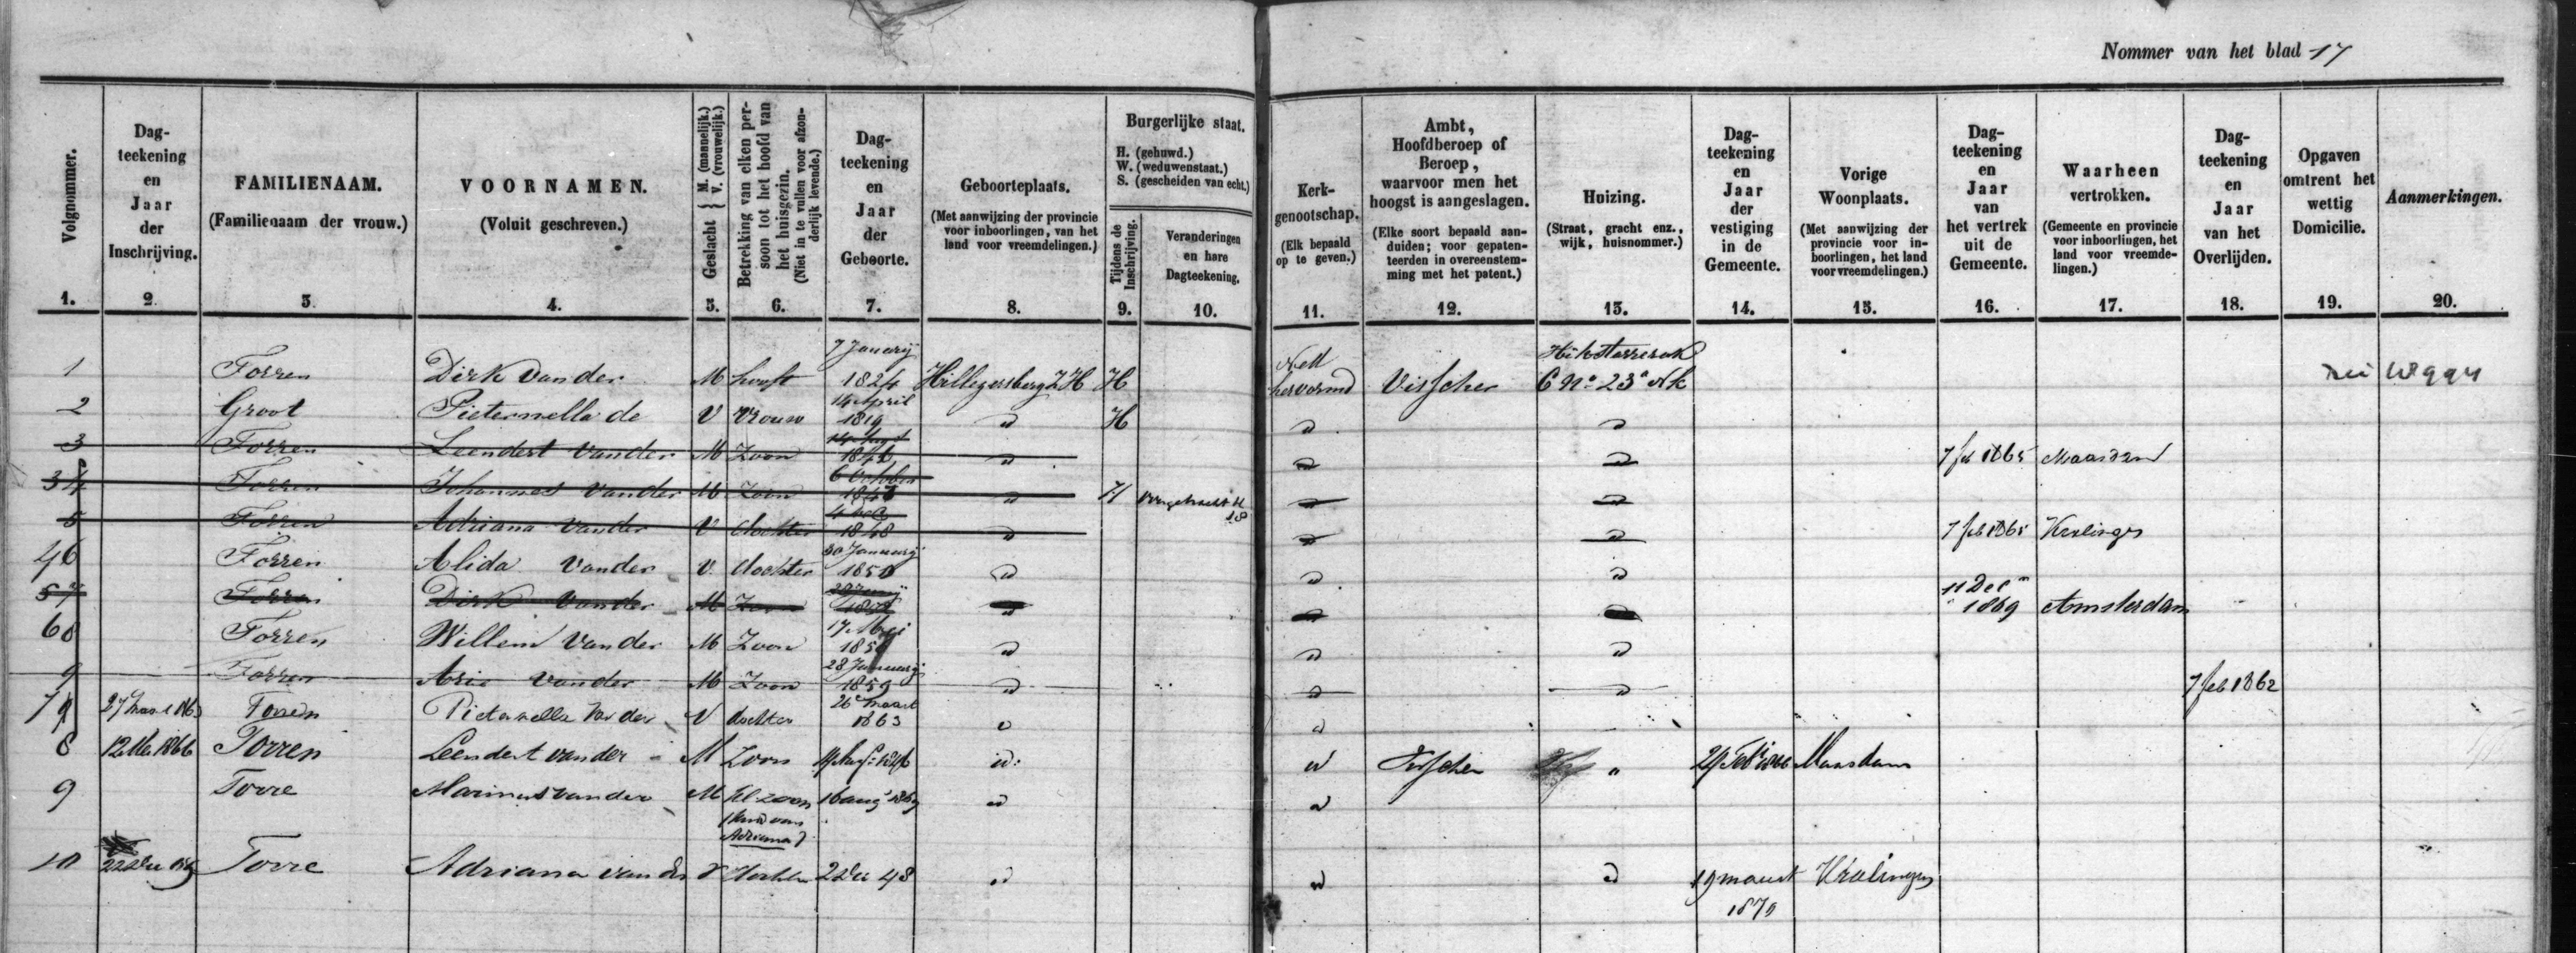 Nommer van het blad 17
Volgnommer.
1.
Dag-
teekening
en
Jaar
der
Inschrijving.
2.
FAMILIENAAM.
(Familienaam der vrouw.)
3.
VOORNAMEN.
(Voluit geschreven.)
4.
Geslacht { M. (mannelijk.) V. (vrouwelijk.)
5.
Betrekking van elken per-
soon tot het hoofd van
het huisgezin.
(Niet in te vullen voor afzon-
derlijk levende.)
6.
Dag-
teekening
en
Jaar
der
Geboorte.
7.
Geboorteplaats.
(Met aanwijzing der provincie
voor inboorlingen, van het
land voor vreemdelingen.)
8.
Burgerlijke staat.
H. (gehuwd.)
W. (weduwenstaat.)
S. (gescheiden van echt.)
Tijdens de
Inschrijving.
9.
Veranderingen
en hare
Dagteekening.
10.
Kerk-
genootschap.
(Elk bepaald
op te geven.)
11.
Ambt,
Hoofdberoep of
Beroep,
waarvoor men het
hoogst is aangeslagen.
(Elke soort bepaald aan-
duiden; voor gepaten-
teerden in overeenstem-
ming met het patent.)
12.
Huizing.
(Straat, gracht enz.,
wijk, huisnommer.)
13.
Dag-
teekening
en
Jaar
der
vestiging
in de
Gemeente.
14.
Vorige
Woonplaats.
(Met aanwijzing der
provincie voor in-
boorlingen, het land
voor vreemdelingen.)
15.
Dag-
teekening
en
Jaar
van
het vertrek
uit de
Gemeente.
16.
Waarheen
vertrokken.
(Gemeente en provincie
voor inboorlingen, het
land voor vreemde-
lingen.)
17.
Dag-
teekening
en
Jaar
van het
Overlijden.
18.
Opgaven
omtrent het
wettig
Domicilie.
19.
Aanmerkingen.
20.
1 Torren Dirk van der M hooft 7 Januarij 1824 Hillegersberg ZH H Ned hervormd Visscher C No 23a
2 Groot Pieternella de V vrouw 14 April 1819 " H " "
3 Torren Leendert van der M Zoon 1846 " " " 7 feb 1865 Maasdam
34 Torren Johannes van der M Zoon 6 October " H " "
5 Torren Adriana van der V dochter 1848 " " " 7 feb 1865 Kralingen
46 Torren Alida van der V dochter 30 Januarij " " "
57 Torren Dirk van der M Zoon " " " 11 Dec 1869 Amsterdam
68 Torren Willem van der M Zoon 17 Mei " " "
9 Torren Arie van der M Zoon 28 Januarij 1859 " " " 7 feb 1862
79 27 Maart 1863 Torren Pieternella van der V dochter 26e Maart 1863 " "
8 12 Mei 1866 Torren Leendert van der M Zoon 14 Aug: 1846 " " Visscher " 29 Feb 1866 Maasdam
9 Torre Marinus van der M Kl zoon 16 aug 1869 " "
(kind van
Adriana)
10 22 Dec Torre Adriana van der V dochter 2 Dec 48 " " " 19 maart 1870 Kralingen